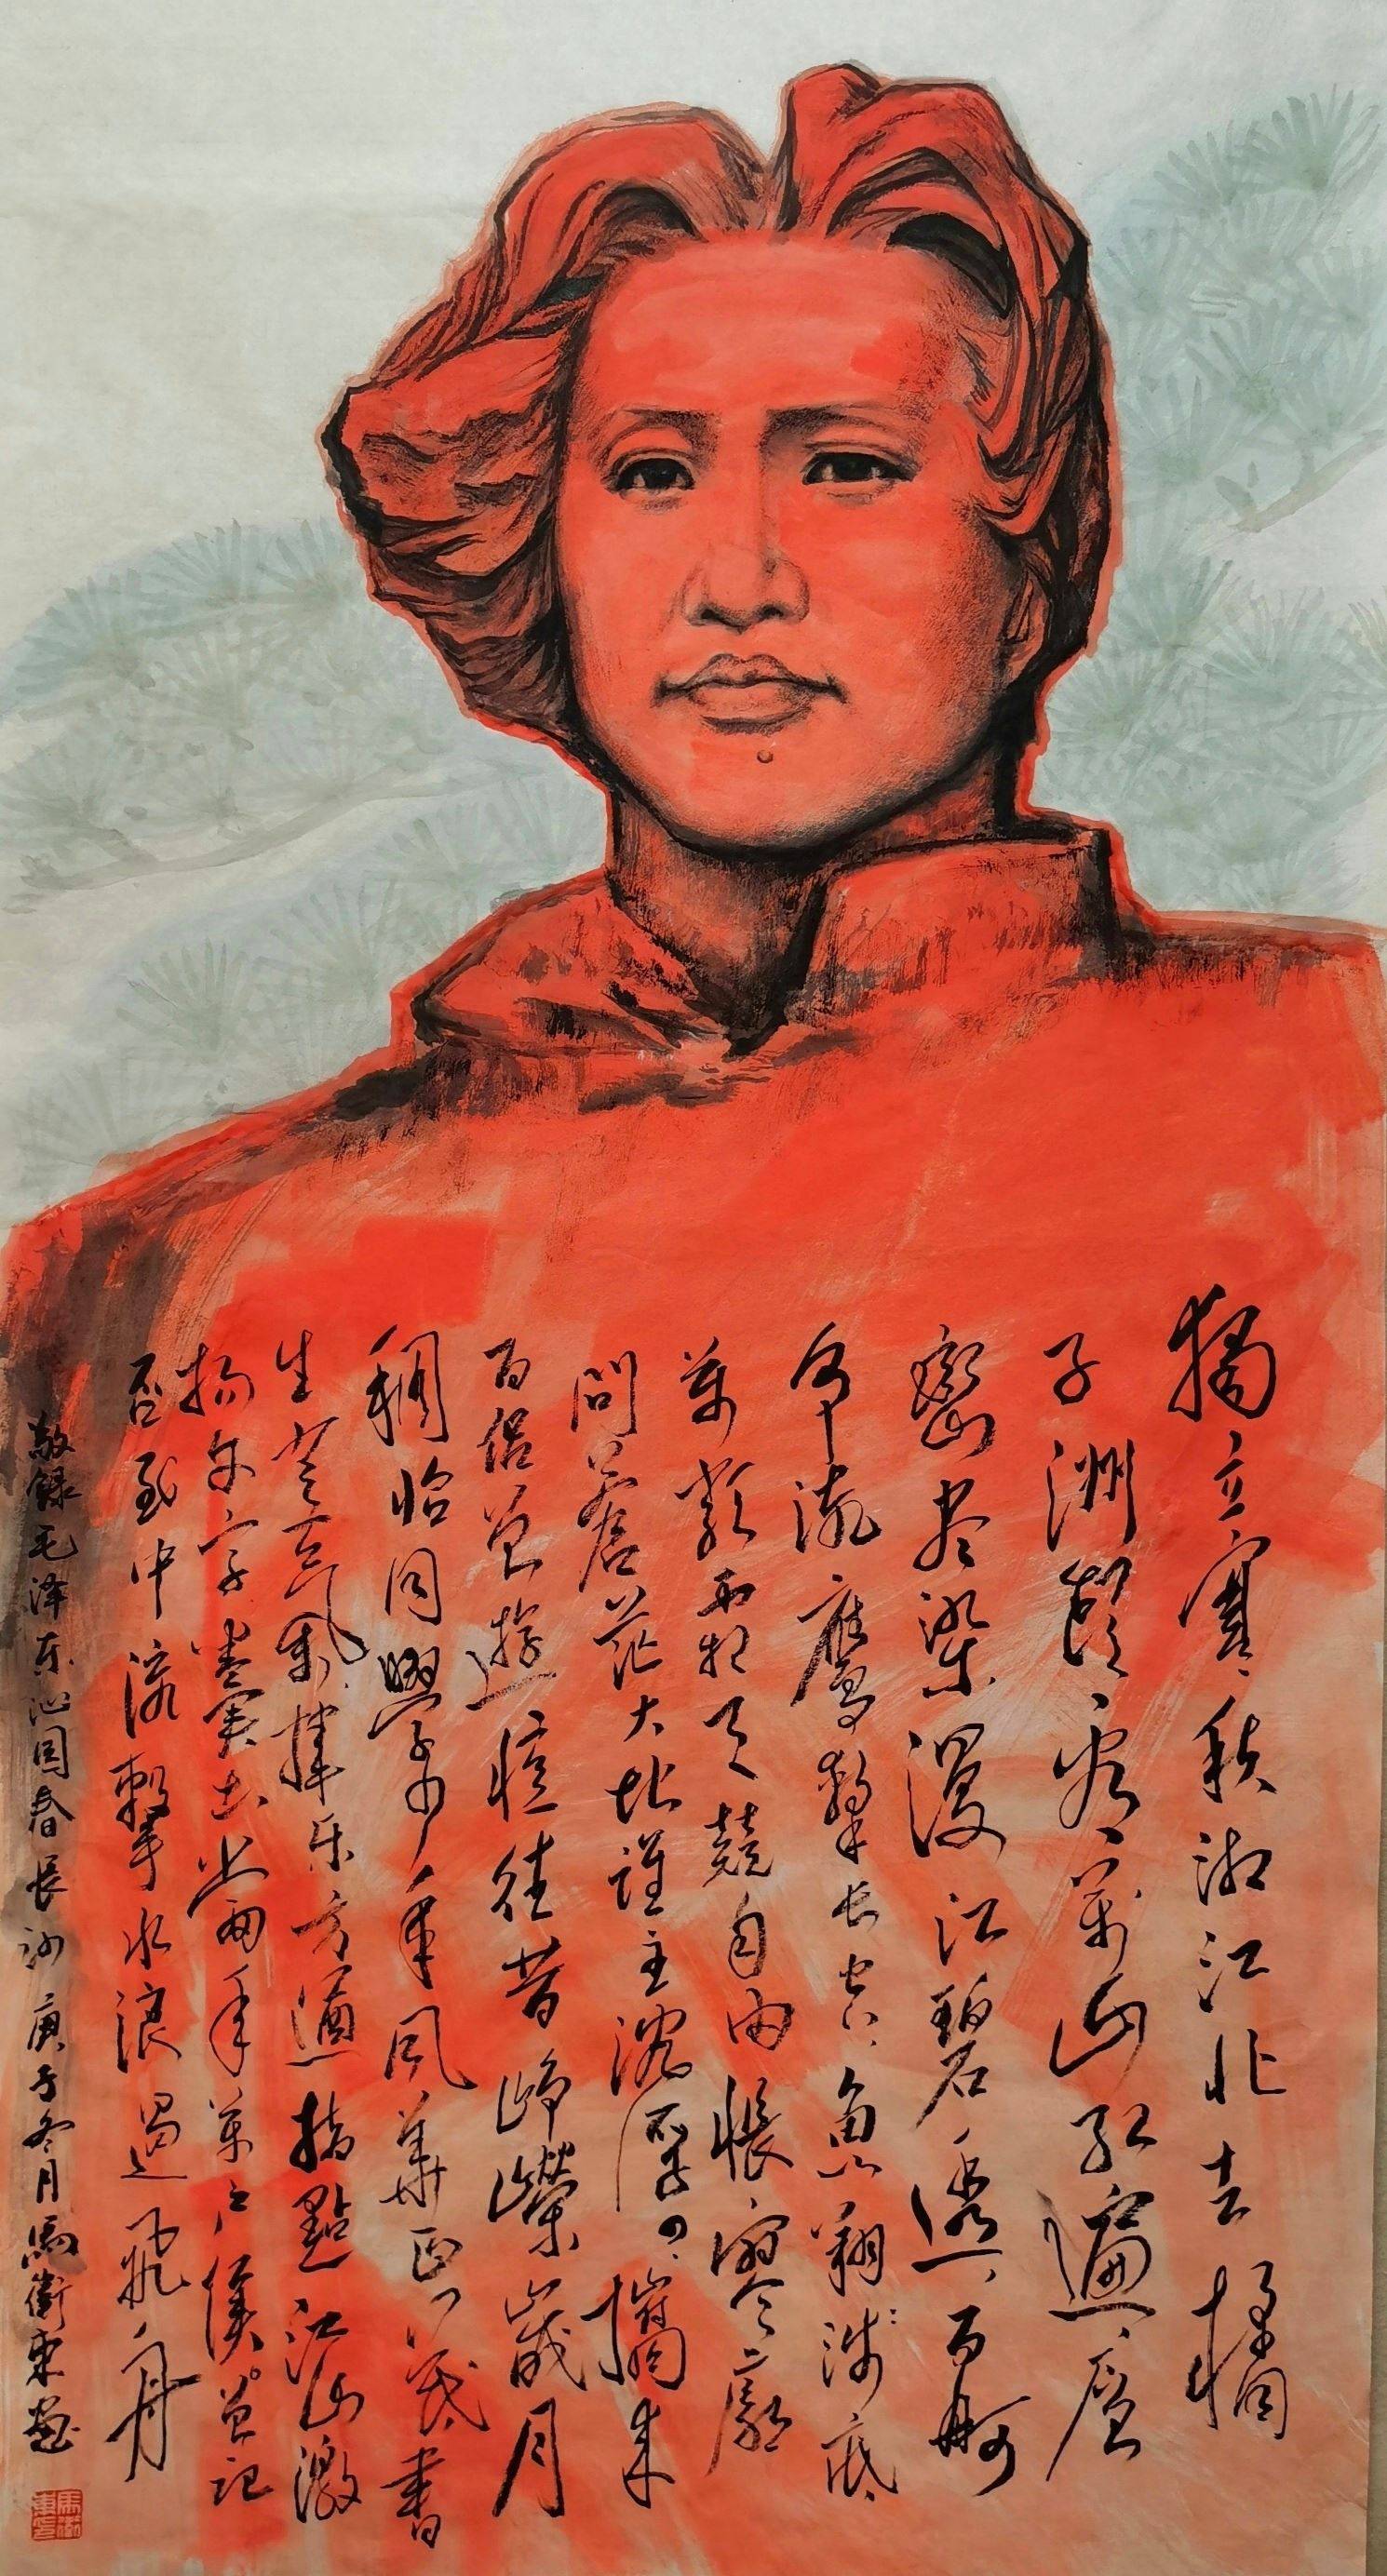 獨立寒秋湘江北去橘
子洲頭看萬山红遍層
巒尽染漫江碧透百舸
争流鷹擊长空魚翔浅底
萬類霜天競自由悵寥廓
問蒼茫大地誰主沉浮攜来
百侣曾遊憶往昔崢嶸歲月
稠恰同學少年風華正茂書
生意气揮斥方遒指點江山激
扬文字粪土当年萬户侯曾记
否到中流擊水浪遏飛舟
敬録毛泽东沁园春長沙庚子冬月馬衛東画